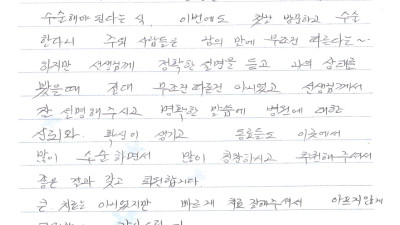 수술해야 된다는 식. 이번에도 첫날 방문하고 수술
한다시 주위 사람들은 남의 말에 무조건 따른다는~
하지만 선생님께 정확한 설명을 듣고 나의 상태를
봤을때 절대 무조건 따른건 아니었고 선생님께서
잘 설명해주시고 명확한 말씀에 병원에 대한
신뢰와 확신이 생기고 동료들도 이곳에서
많이 수술하면서 많이 칭찬하시고 추천해주셔서
좋은 결과 갖고 퇴원합니다.
큰 치료는 아니었지만 빠르게 치료 잘해주셔서 아프지않게